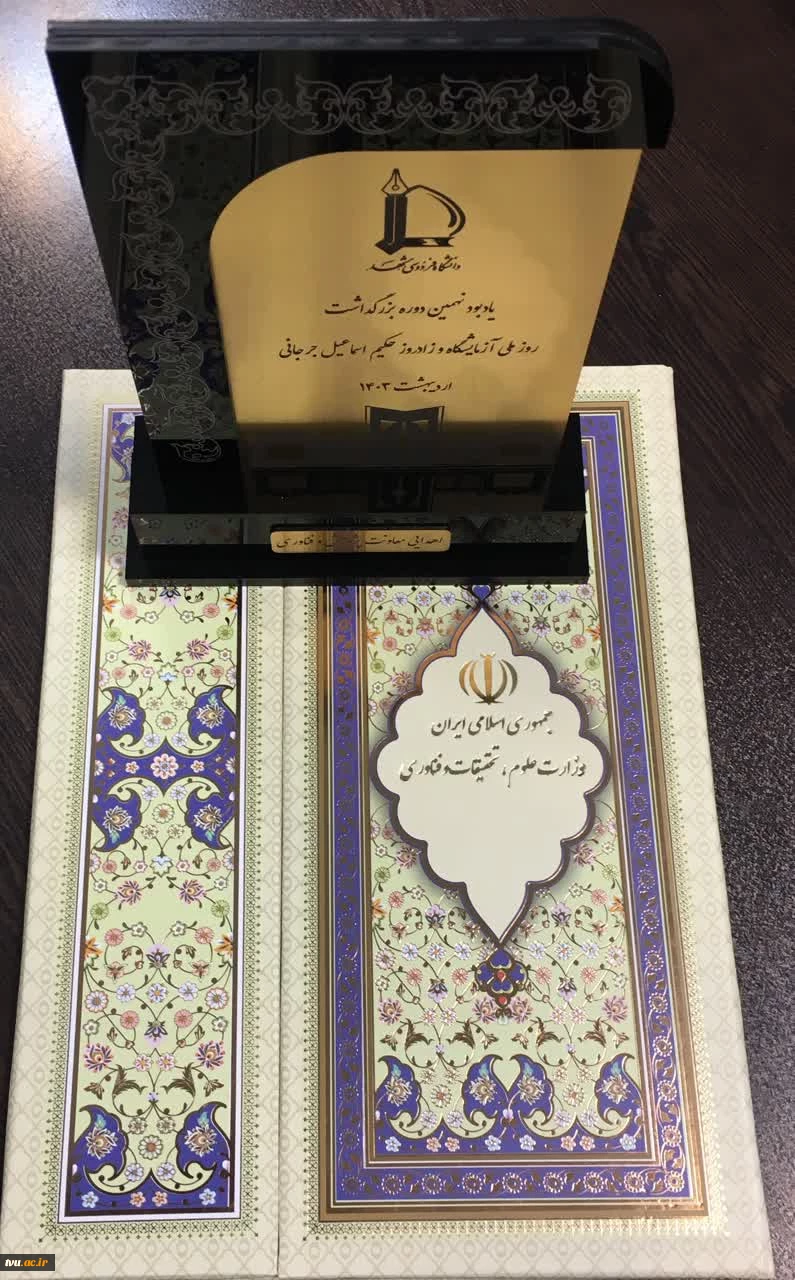 دانشگاه فردوسی مشهد
یادبود نهمین دوره بزرگداشت
روز ملی آزمایشگاه و زادروز حکیم اسماعیل جرجانی
اردیبهشت ۱۴۰۳
اهدایی معاونت و فناوری
جمهوری اسلامی ایران
وزارت علوم، تحقیقات و فناوری
tvu.ac.ir